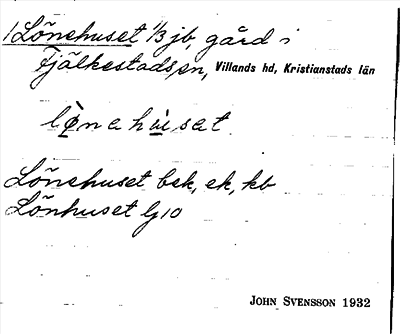 1 Lönehuset 1/3 jb, gård i
Fjälkestads sn, Villands hd, Kristianstads län
lønahúsat
Lönehuset bek, ek, kb
Lönhuset Gj 10
JOHN SVENSSON 1932